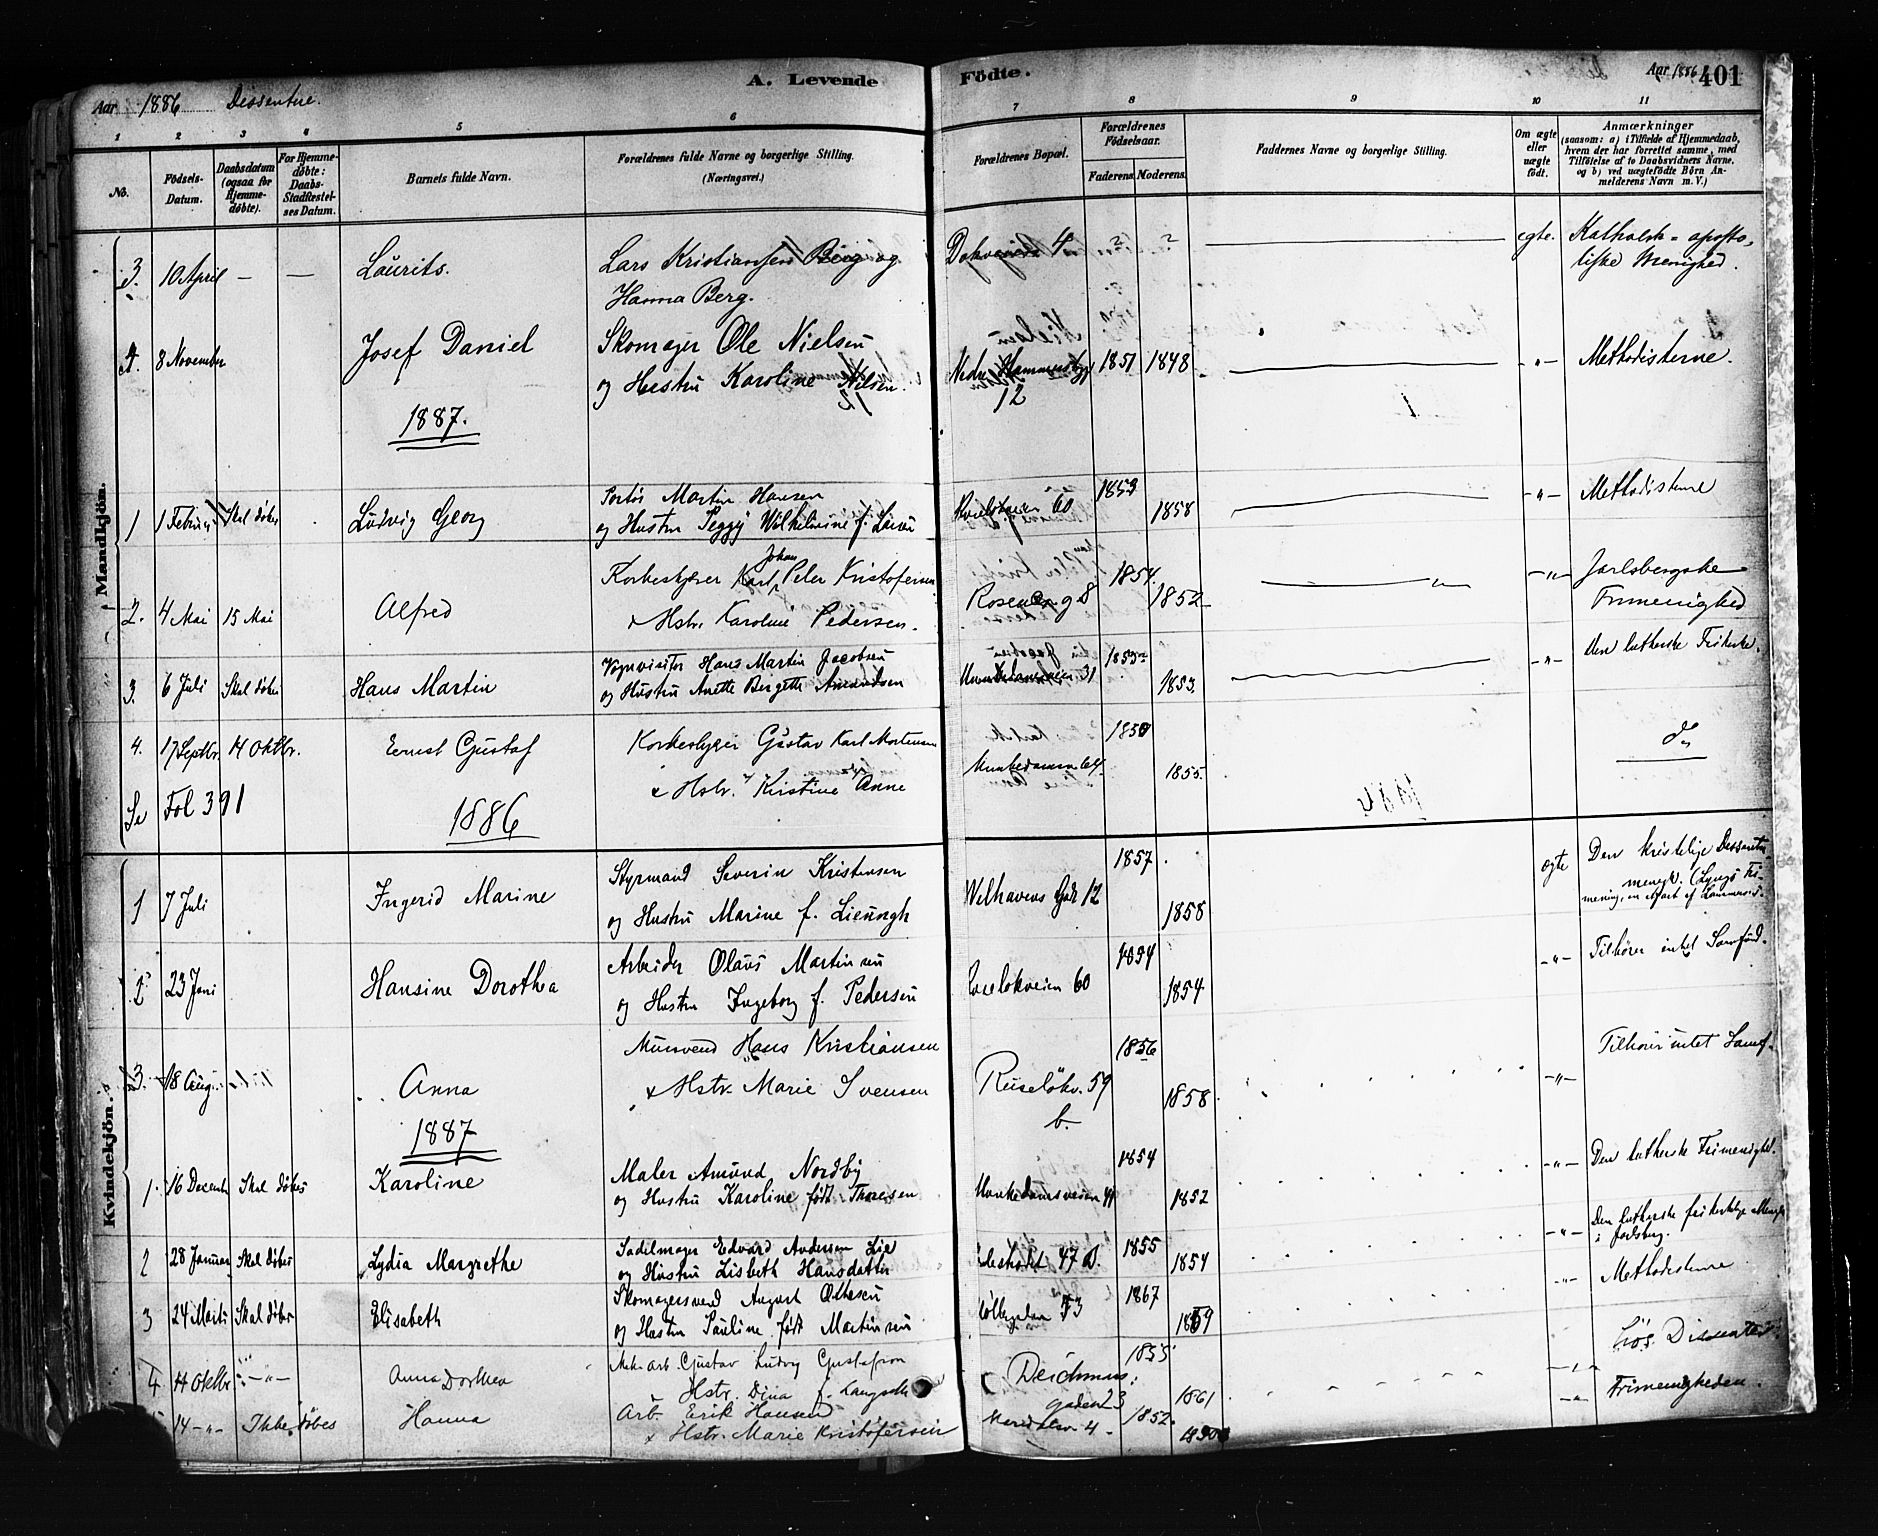 Aar 1886 Dissentere. A. Levende Fødte. Aar 1886 401
1 2 3 4 5 6 7 8 9 10 11
No.
Fødsels-Datum.
Daabsdatum (ogsaa for Hjemme-døbte).
For Hjemme-døbte: Daabs-Stadfæstel-ses Datum.
Barnets fulde Navn.
Forældrenes fulde Navne og borgerlige Stilling. (Næringsvei.)
Forældrenes Bopæl.
Forældrenes Fødselsaar.
Faderens. Moderens.
Faddernes Navne og borgerlige Stilling.
Om ægte eller uægte født.
Anmærkninger
(saasom: a) i Tilfælde af Hjemmedaab, hvem der har forrettet samme, med Tilføielse af to Daabsvidners Navne, og b) ved uægtefødte Børn An-melderens Navn m. V.)
Mandkjøn.
3. 10 April — — Laurits. Lars Kristiansen Berg og 4 ? ? egte. Katholsk = aposto-
Hanna Berg. liske Menighed.
4. 8 November Josef Daniel Skomager Ole Nielsen
og Hustru Karoline Nilsen. Nedre 12 1851 1848 — " — Methodisterne.
1887.
1 1 Februar Skal døbes Ludvig Georg Martin Hansen 1853 — " — Methodisterne
og Hustru Peggy Wilhelmine f. Larsen 60 1858
2. 4 Mai 15 Mai Alfred Korkeskjærer Karl Johan Peter Kristofersen 1854 — " — Jarlsbergske
& Hstr. Karoline Pedersen. 8 1852 Frimenighed
3. 6 Juli Skal døbes Hans Martin Vognvisitør Hans Martin Jacobsen 1853 — " — Den lutherske Frikirke.
og Hustru Anette Birgitte Amundsen Munkedamsveien 31 1853.
4. 17 Septbr. 14 Oktbr. Ernst Gustaf Gustav Karl Mortensen 1850 do
& Hstr. Kirstine Anne Munkedamsv 1855.
Se Fol 391
1886
Kvindekjøn.
1 7 Juli Ingerid Marine Styrmand Severin Kristensen Welhavens Gade 12 1857 ægte Den kristelige Dissenter-
og Hustru Marine f. Lieungh 1858
2 23 Juni Hansine Dorothea Arbeider Olaus Martinsen — " — Tilhører intet Samfund.
og Hustru Ingeborg f. Pedersen 60 1854
3. 18 Aug. Anna Mursvend Hans Kristiansen 1856 — " — Tilhører intet Samf.
& Hstr. Marie Svensen Ruseløkv. 59 b. 1858
1887
1. 16 Decembr Skal døbes Karoline Maler Amund Nordby 1854 — " — Den lutherske Frimenighed.
og Hustru Karoline født Thoresen Munkedamsveien 1852
2 28 Januar Skal døbes Lydia Margrethe Sadelmager Edvard Andersen Lie 47 1855 — " — Den lutherske frikirkelige Menigh
og Hustru Lisbeth Hansdatter 1854 i Jarlsberg.
3 24 Marts Skal døbes Elisabeth Skomagersvend August Ottesen 1867 — " — Methodisterne
og Hustru Pauline født Martinsen
4 14 Oktbr — " — Anna Dorthea Mek. arb. Gustav Ludvig Gustafson Deichmans 1855 Dissenter
Hstr. Dina f. gaden 23 1861
14 — " — Ikke døbes Hanna Arb. Erik Hansen 4 1852. — " — Frimenigheden.
& Hstr. Marie Kristofersen